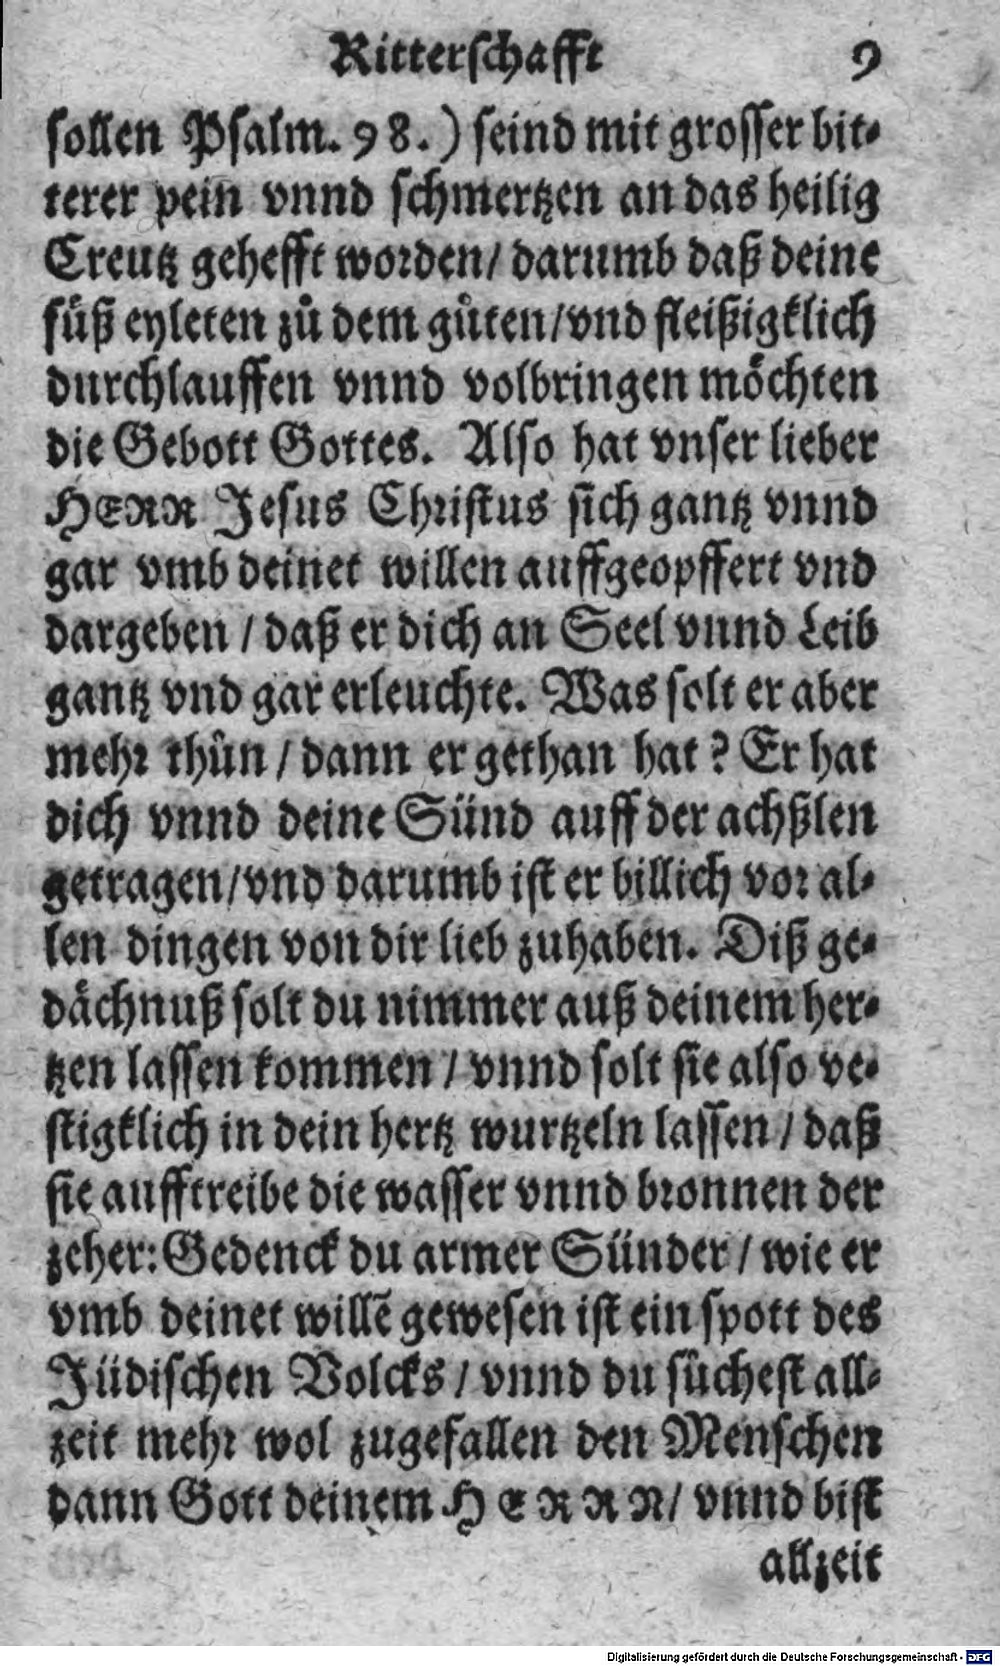 Ritterschafft 9
sollen Psalm. 98.) seind mit grosser bit-
terer pein vnnd schmertzen an das heilig
Creutz gehefft worden/ darumb daß deine
fůß eyleten zů dem gůten/vnd fleißigklich
durchlauffen vnnd volbringen möchten
die Gebott Gottes. Also hat vnser lieber
HERR Jesus Christus sich gantz vnnd
gar vmb deinet willen auffgeopffert vnd
dargeben / daß er dich an Seel vnnd Leib
gantz vnd gar erleuchte. Was solt er aber
mehr thůn / dann er gethan hat ? Er hat
dich vnnd deine Sünd auff der achßlen
getragen/vnd darumb ist er billich vor al-
len dingen von dir lieb zuhaben. Diß ge-
dächnuß solt du nimmer auß deinem her-
tzen lassen kommen / vnnd solt sie also ve-
stigklich in dein hertz wurtzeln lassen / daß
sie aufftreibe die wasser vnnd bronnen der
zeher: Gedenck du armer Sünder / wie er
vmb deinet willē gewesen ist ein spott des
Jüdischen Volcks / vnnd du sůchest all-
zeit mehr wol zugefallen den Menschen
dann Gott deinem HERRN/ vnnd bist
allzeit
Digitalisierung gefördert durch die Deutsche Forschungsgemeinschaft - DFG